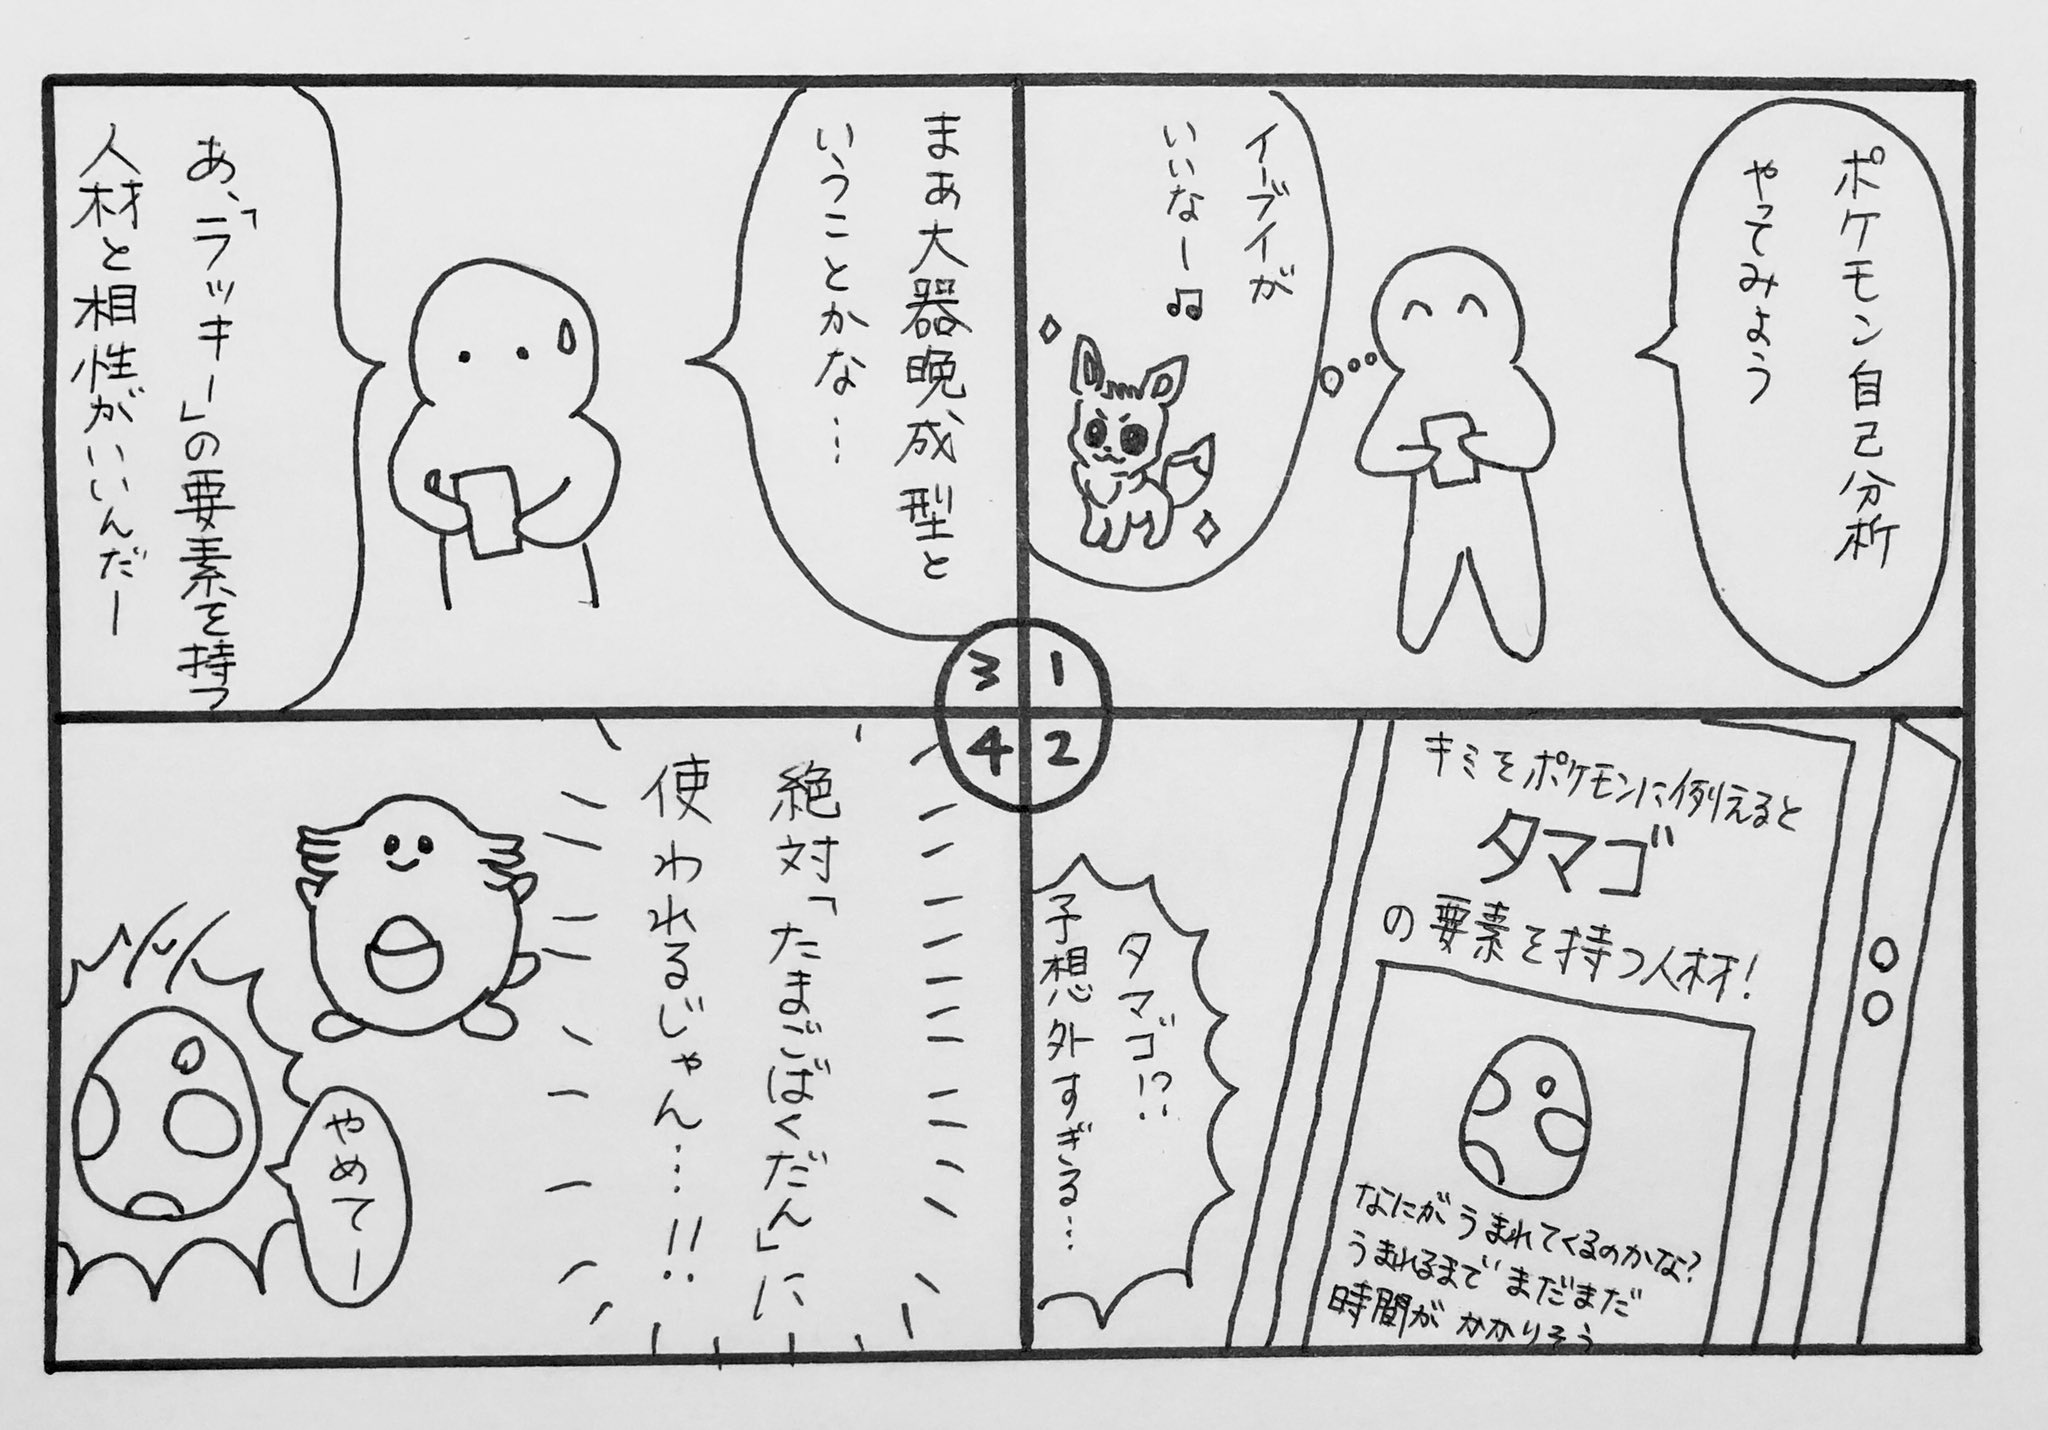 ポケモン自己分析
やってみよう
イーブイが
いいなー♫
1
2
3
4
キミをポケモンに例えると
タマゴ
の要素を持つ人材!
なにがうまれてくるのかな?
うまれるまでまだまだ
時間がかかりそう
タマゴ!?
予想外すぎる…
まぁ大器晩成型と
いうことかな…
あ、「ラッキー」の要素を持つ
人材と相性がいいんだー
絶対「たまごばくだん」に
使われるじゃん…!!
やめてー